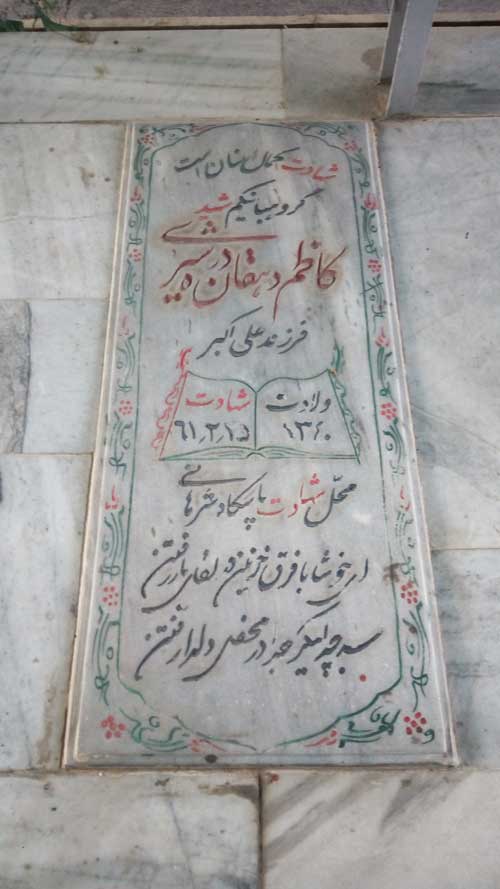 شهادت کمال انسان است
گروهبانیکم شهید
کاظم دهقان درشیری
فرزند علی اکبر
ولادت شهادت
۱۳۴۰ ۶۱٫۲٫۱۵
محل شهادت پاسگاه شرهانی
ای خوشا با فرق خونین در لقای یار رفتن
سر جدا پیکر جدا در محفل دلدار رفتن